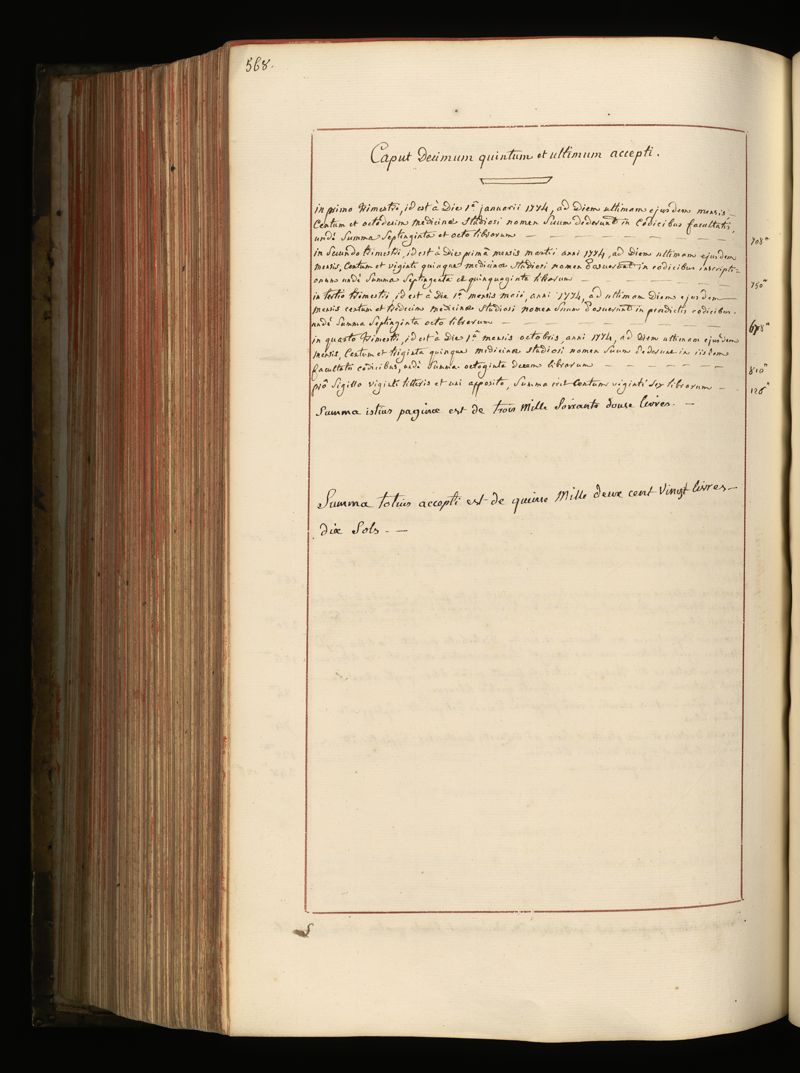 568.
Caput Decimum quintum et ultimum accepti.
in primo trimestri, id est à Die 1ª januarii 1774, ad Diem ultimam ejusdem mensis
Centum et octodecim medicinæ studiosi nomen suum dederunt in Codicibus facultatis,
undè Summa Septinginta et octo librorum — 708ᵗᵗ
in Secundo trimestri, id est à Die primâ mensis martii anni 1774, ad Diem ultimam ejusdem
mensis, Centum et viginti quinque medicinæ studiosi nomen in codicibus inscripti-
onum undè Summa Septingenta et quinquaginta librorum — 750ᵗᵗ
in tertio trimestri, id est à Die 1ª mensis maii, anni 1774, ad ultimam Diem ejusdem
mensis centum et tredecim medicinæ studiosi nomen suum in prædictis codicibus.
undè Summa Septinginta octo librorum — 678ᵗᵗ
in quarto trimestri, id est à Die 1ª mensis octobris, anni 1774, ad Diem ultimam ejusdem
mensis, Centum et triginta quinque medicinæ studiosi nomen suum dederunt in iisdem
facultatis codicibus, undè Summa octoginta decem librorum — 810ᵗᵗ
prô Sigillo viginti litteris et uni apposito, Summa Centum viginti sex librorum — 126ᵗᵗ
Summa istius paginæ est de trois Mille Soixante douse livres. —
Summa totius accepti est de quinse Mille deux cent Vingt livres
dix Sols. —